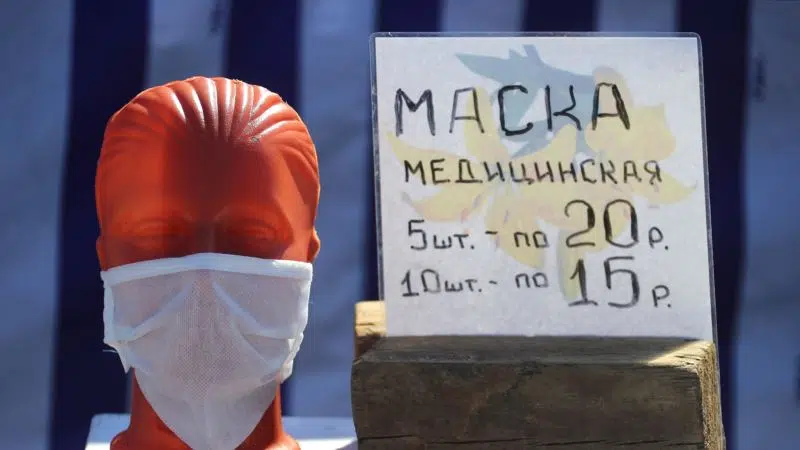 МАСКА
МЕДИЦИНСКАЯ
5шт. - по 20 р.
10шт. - по 15 р.